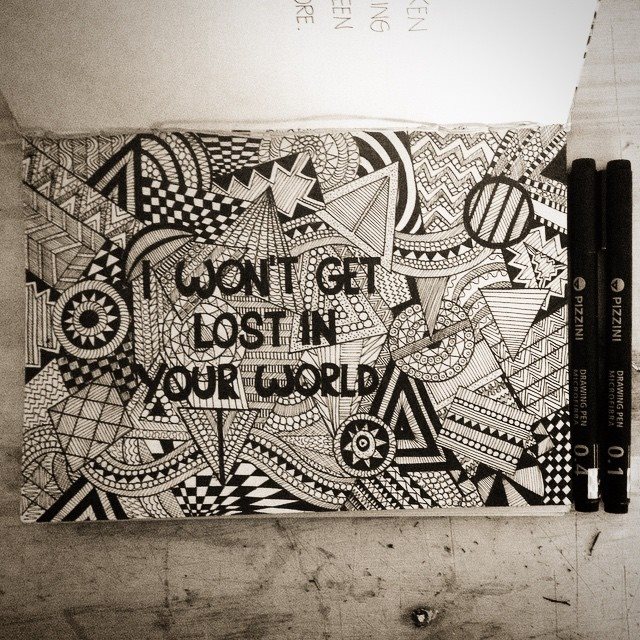 KEN
ING
EEN
ORE.
I WON'T GET
LOST IN
YOUR WORLD
PIZZINI
DRAWING PEN
MICROFIBRA
0.4
PIZZINI
DRAWING PEN
MICROFIBRA
0.1